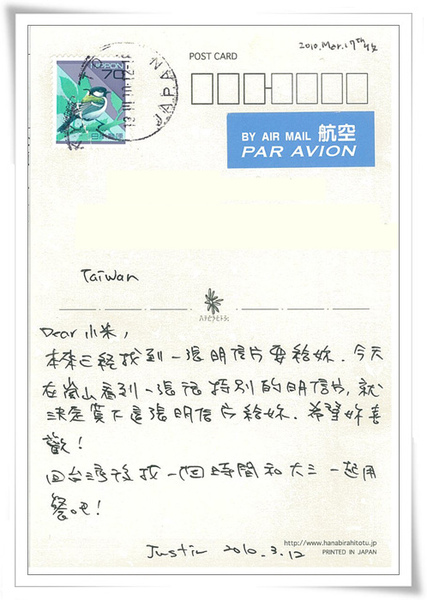 2010.Mar.17
NIPPON
70
JAPAN
POST CARD
BY AIR MAIL 航空
PAR AVION
Taiwan
Dear 小米,
本來已經找到一張明信片要給妳. 今天
在嵐山看到一張很特別的明信片, 就
決定買下這張明信片給妳. 希望妳喜
歡!
回台灣後找一個時間和大三一起用
餐吧!
Justin 2010.3.12
http://www.hanabirahitotu.jp
PRINTED IN JAPAN